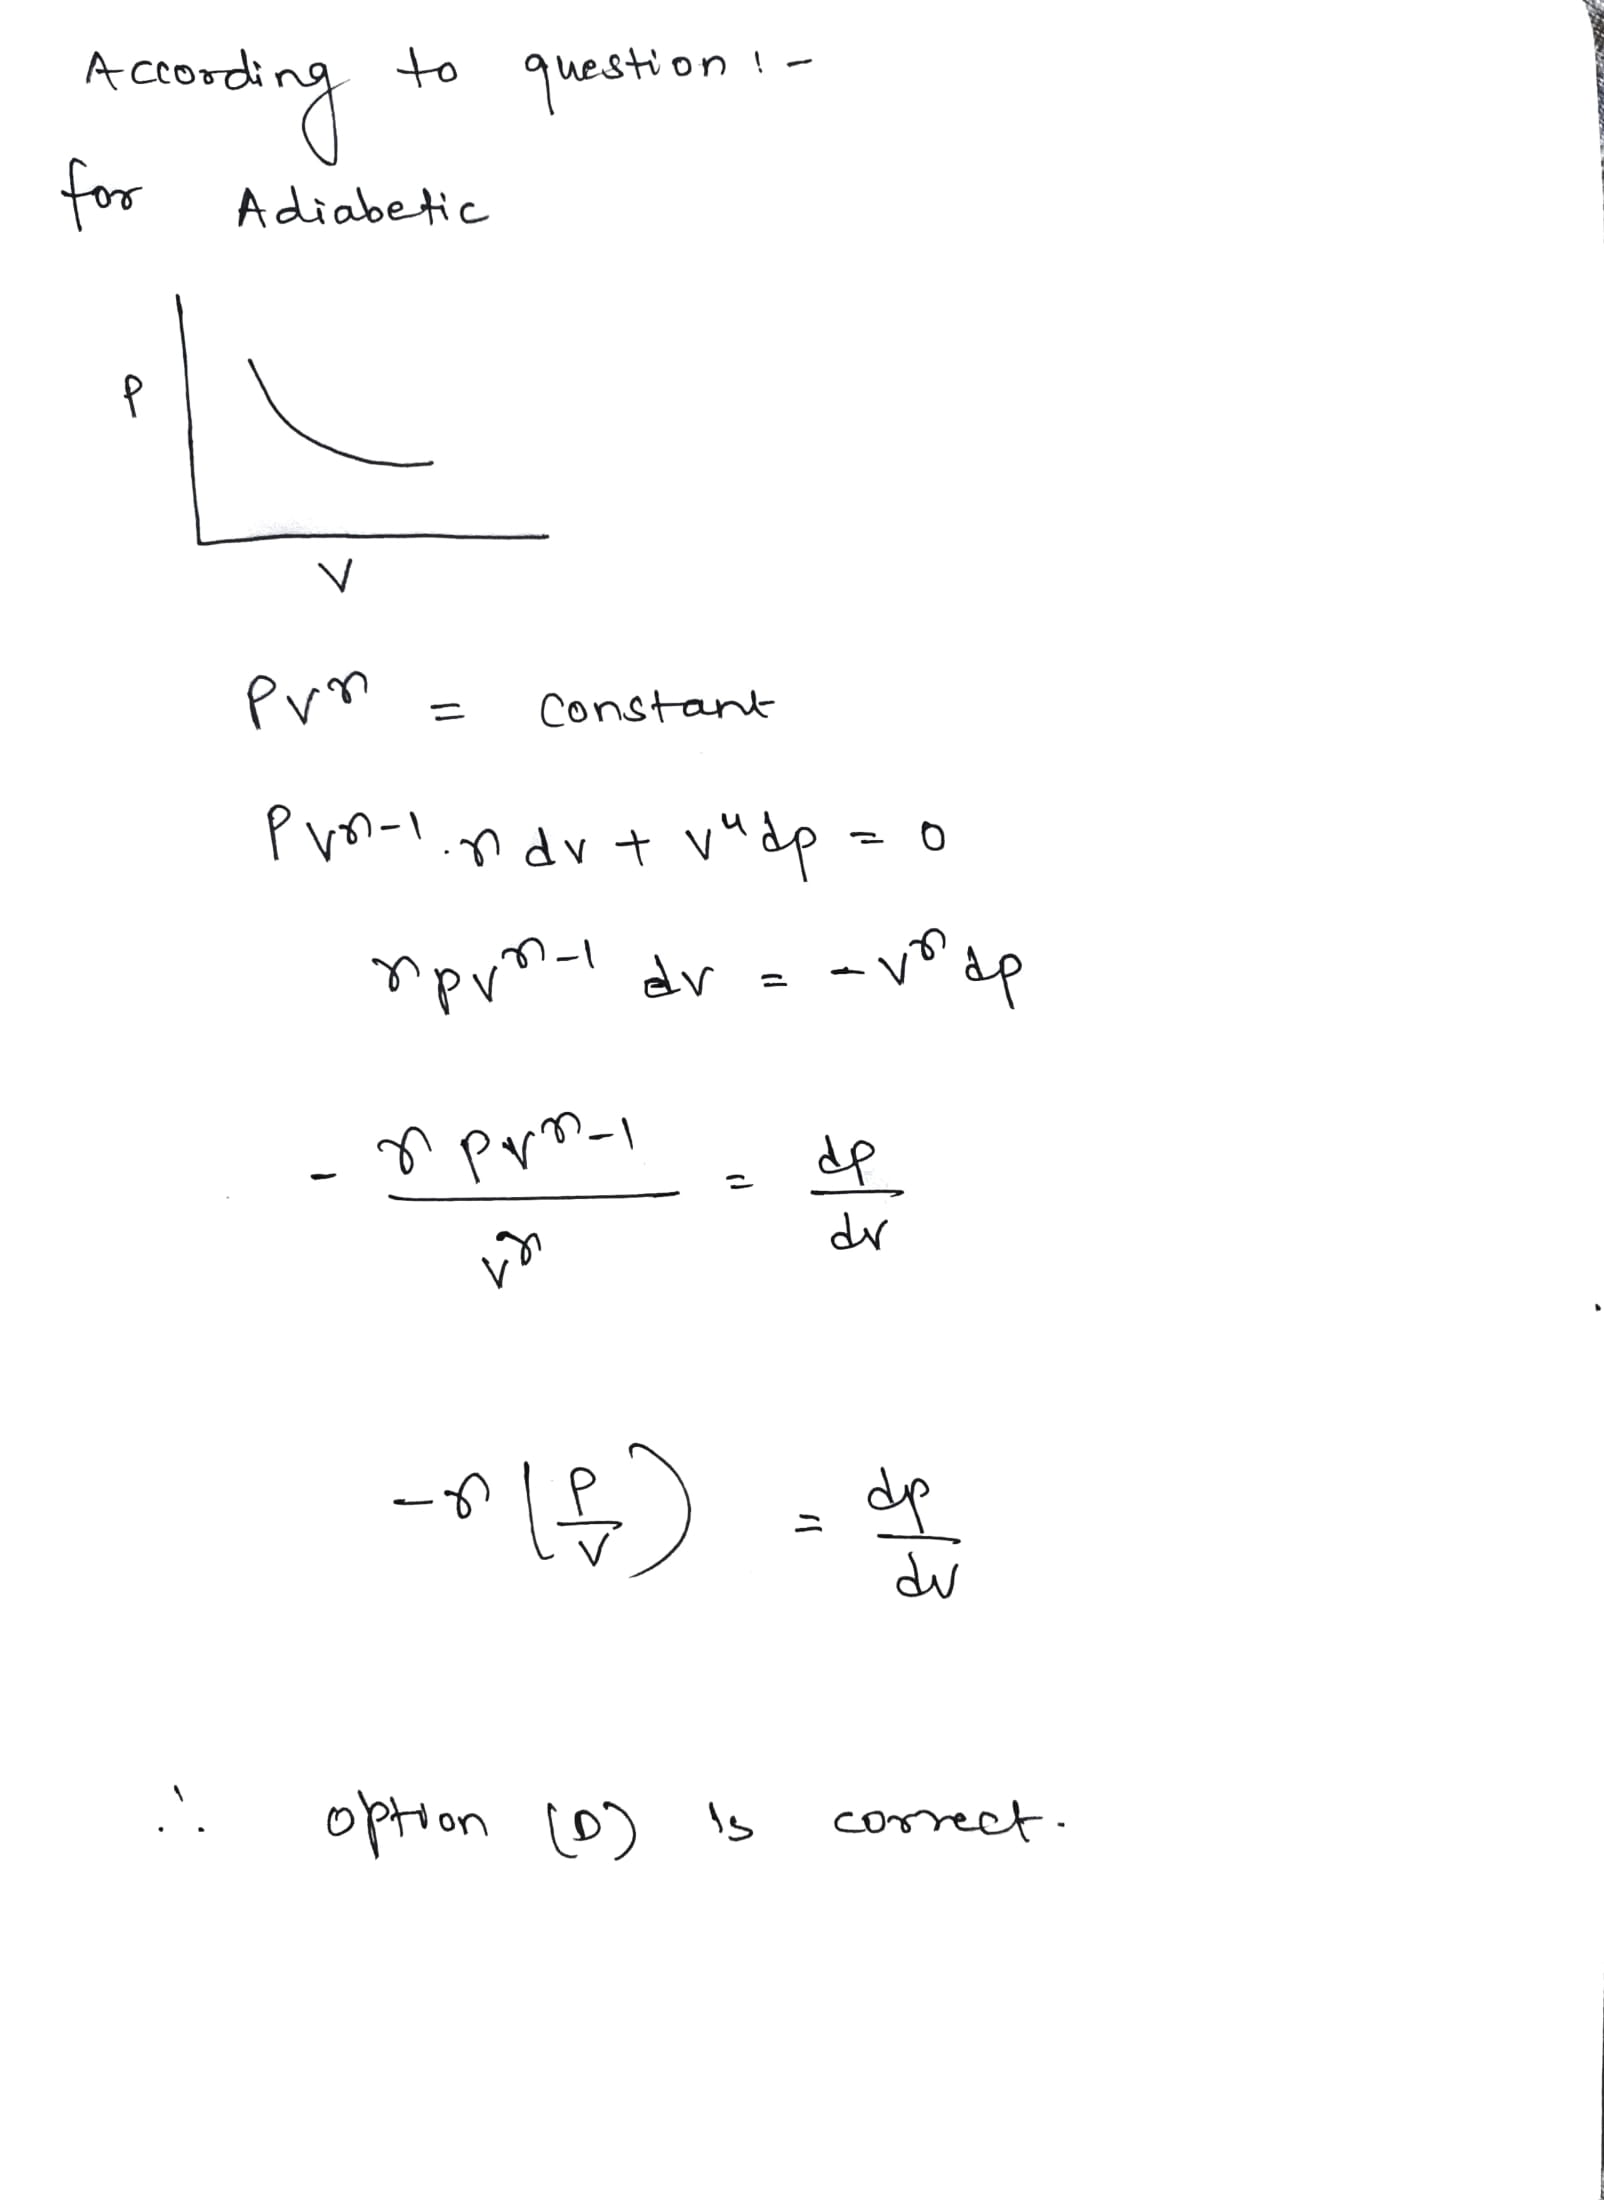 According to question :-
for Adiabetic
P
V
PV^γ = Constant
PV^γ-1 . γ dv + V^4 dp = 0
γ PV^γ-1 dv = - V^γ dp
- γ PV^γ-1 / V^γ = dp / dv
-γ (P / V) = dp / dv
∴ option (D) is correct.